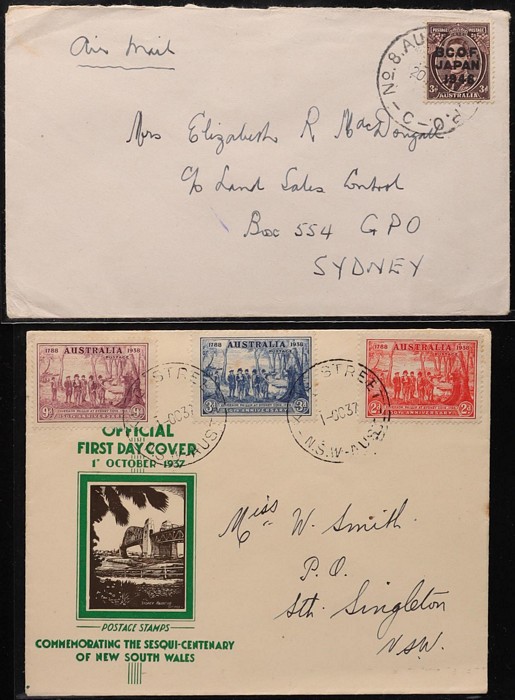 Air Mail
POSTAGE POSTAGE
B.C.O.F.
JAPAN
1946
3D AUSTRALIA 3D
No. 8. AU
Mrs Elizabeth R MacDougall
c/o Land Sales Control
Box 554 GPO
SYDNEY
1788 AUSTRALIA 1938
POSTAGE
9D 9D
1788 AUSTRALIA 1938
POSTAGE
3D 3D
1788 AUSTRALIA 1938
POSTAGE
2D 2D
STREET
1-OC37
N.S.W-AUS
STREET
1-OC37
N.S.W-AUS
OFFICIAL
FIRST DAY COVER
1ST OCTOBER 1937
POSTAGE STAMPS
COMMEMORATING THE SESQUI-CENTENARY
OF NEW SOUTH WALES
Miss W. Smith.
P.O.
Sth. Singleton
NSW.